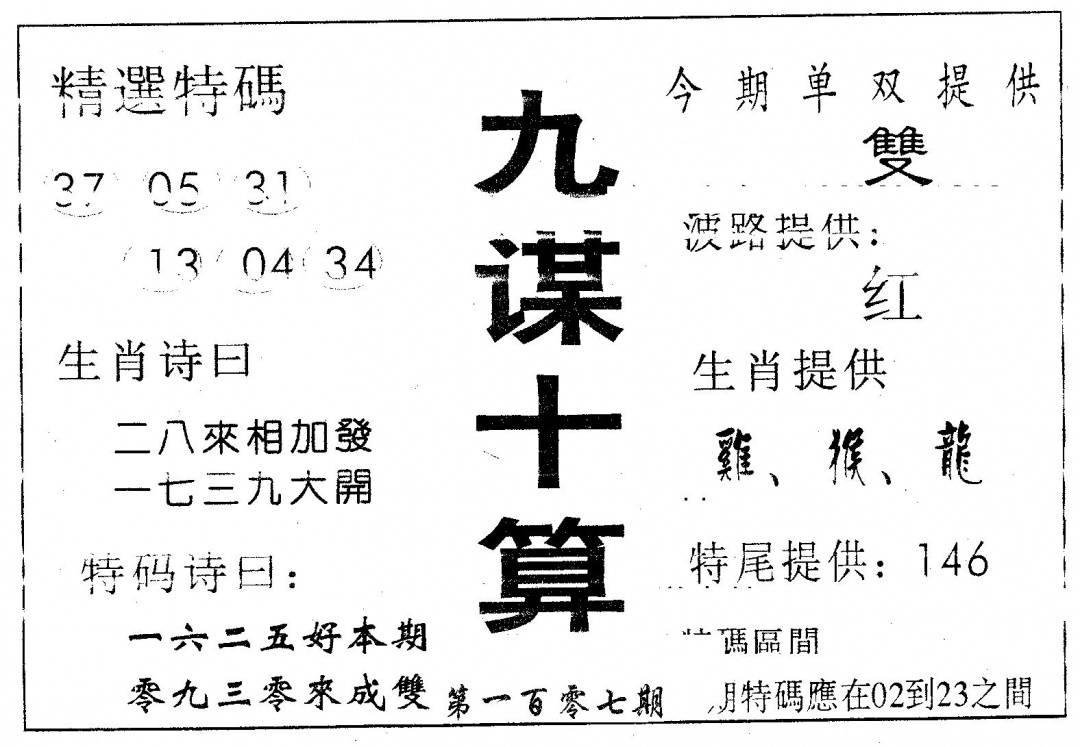 精選特碼
37 05 31
13 04 34
生肖诗曰
二八來相加發
一七三九大開
特码诗曰：
一六二五好本期
零九三零來成雙
九谋十算
第一百零七期
今期单双提供
雙
波路提供：
红
生肖提供
雞、猴、龍
特尾提供：146
特碼區間
期特碼應在02到23之間